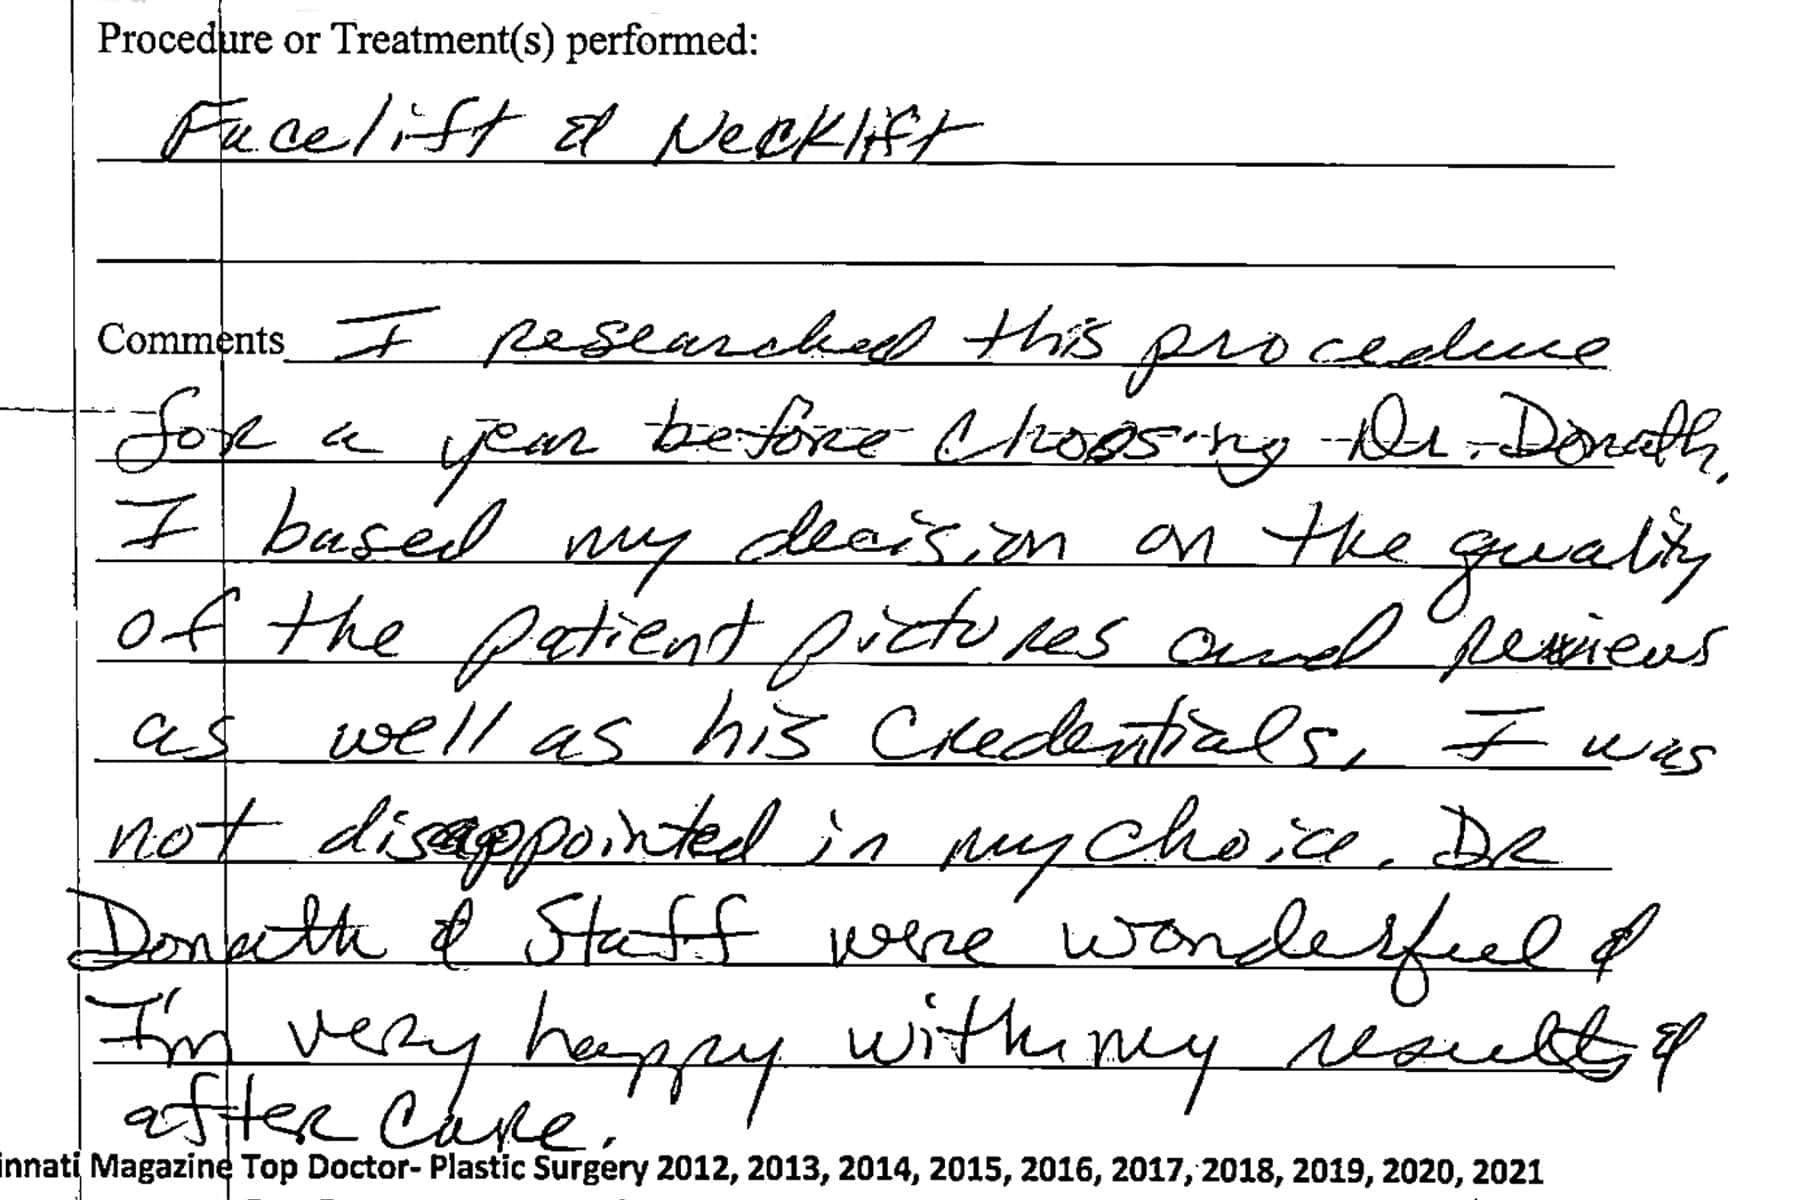 Procedure or Treatment(s) performed:
Facelift & Necklift
Comments I researched this procedure
for a year before choosing Dr. Donath.
I based my decision on the quality
of the patient pictures and reviews
as well as his credentials. I was
not disappointed in my choice. DR
Donath & Staff were wonderful &
I'm very happy with my results &
after care.
innati Magazine Top Doctor- Plastic Surgery 2012, 2013, 2014, 2015, 2016, 2017, 2018, 2019, 2020, 2021